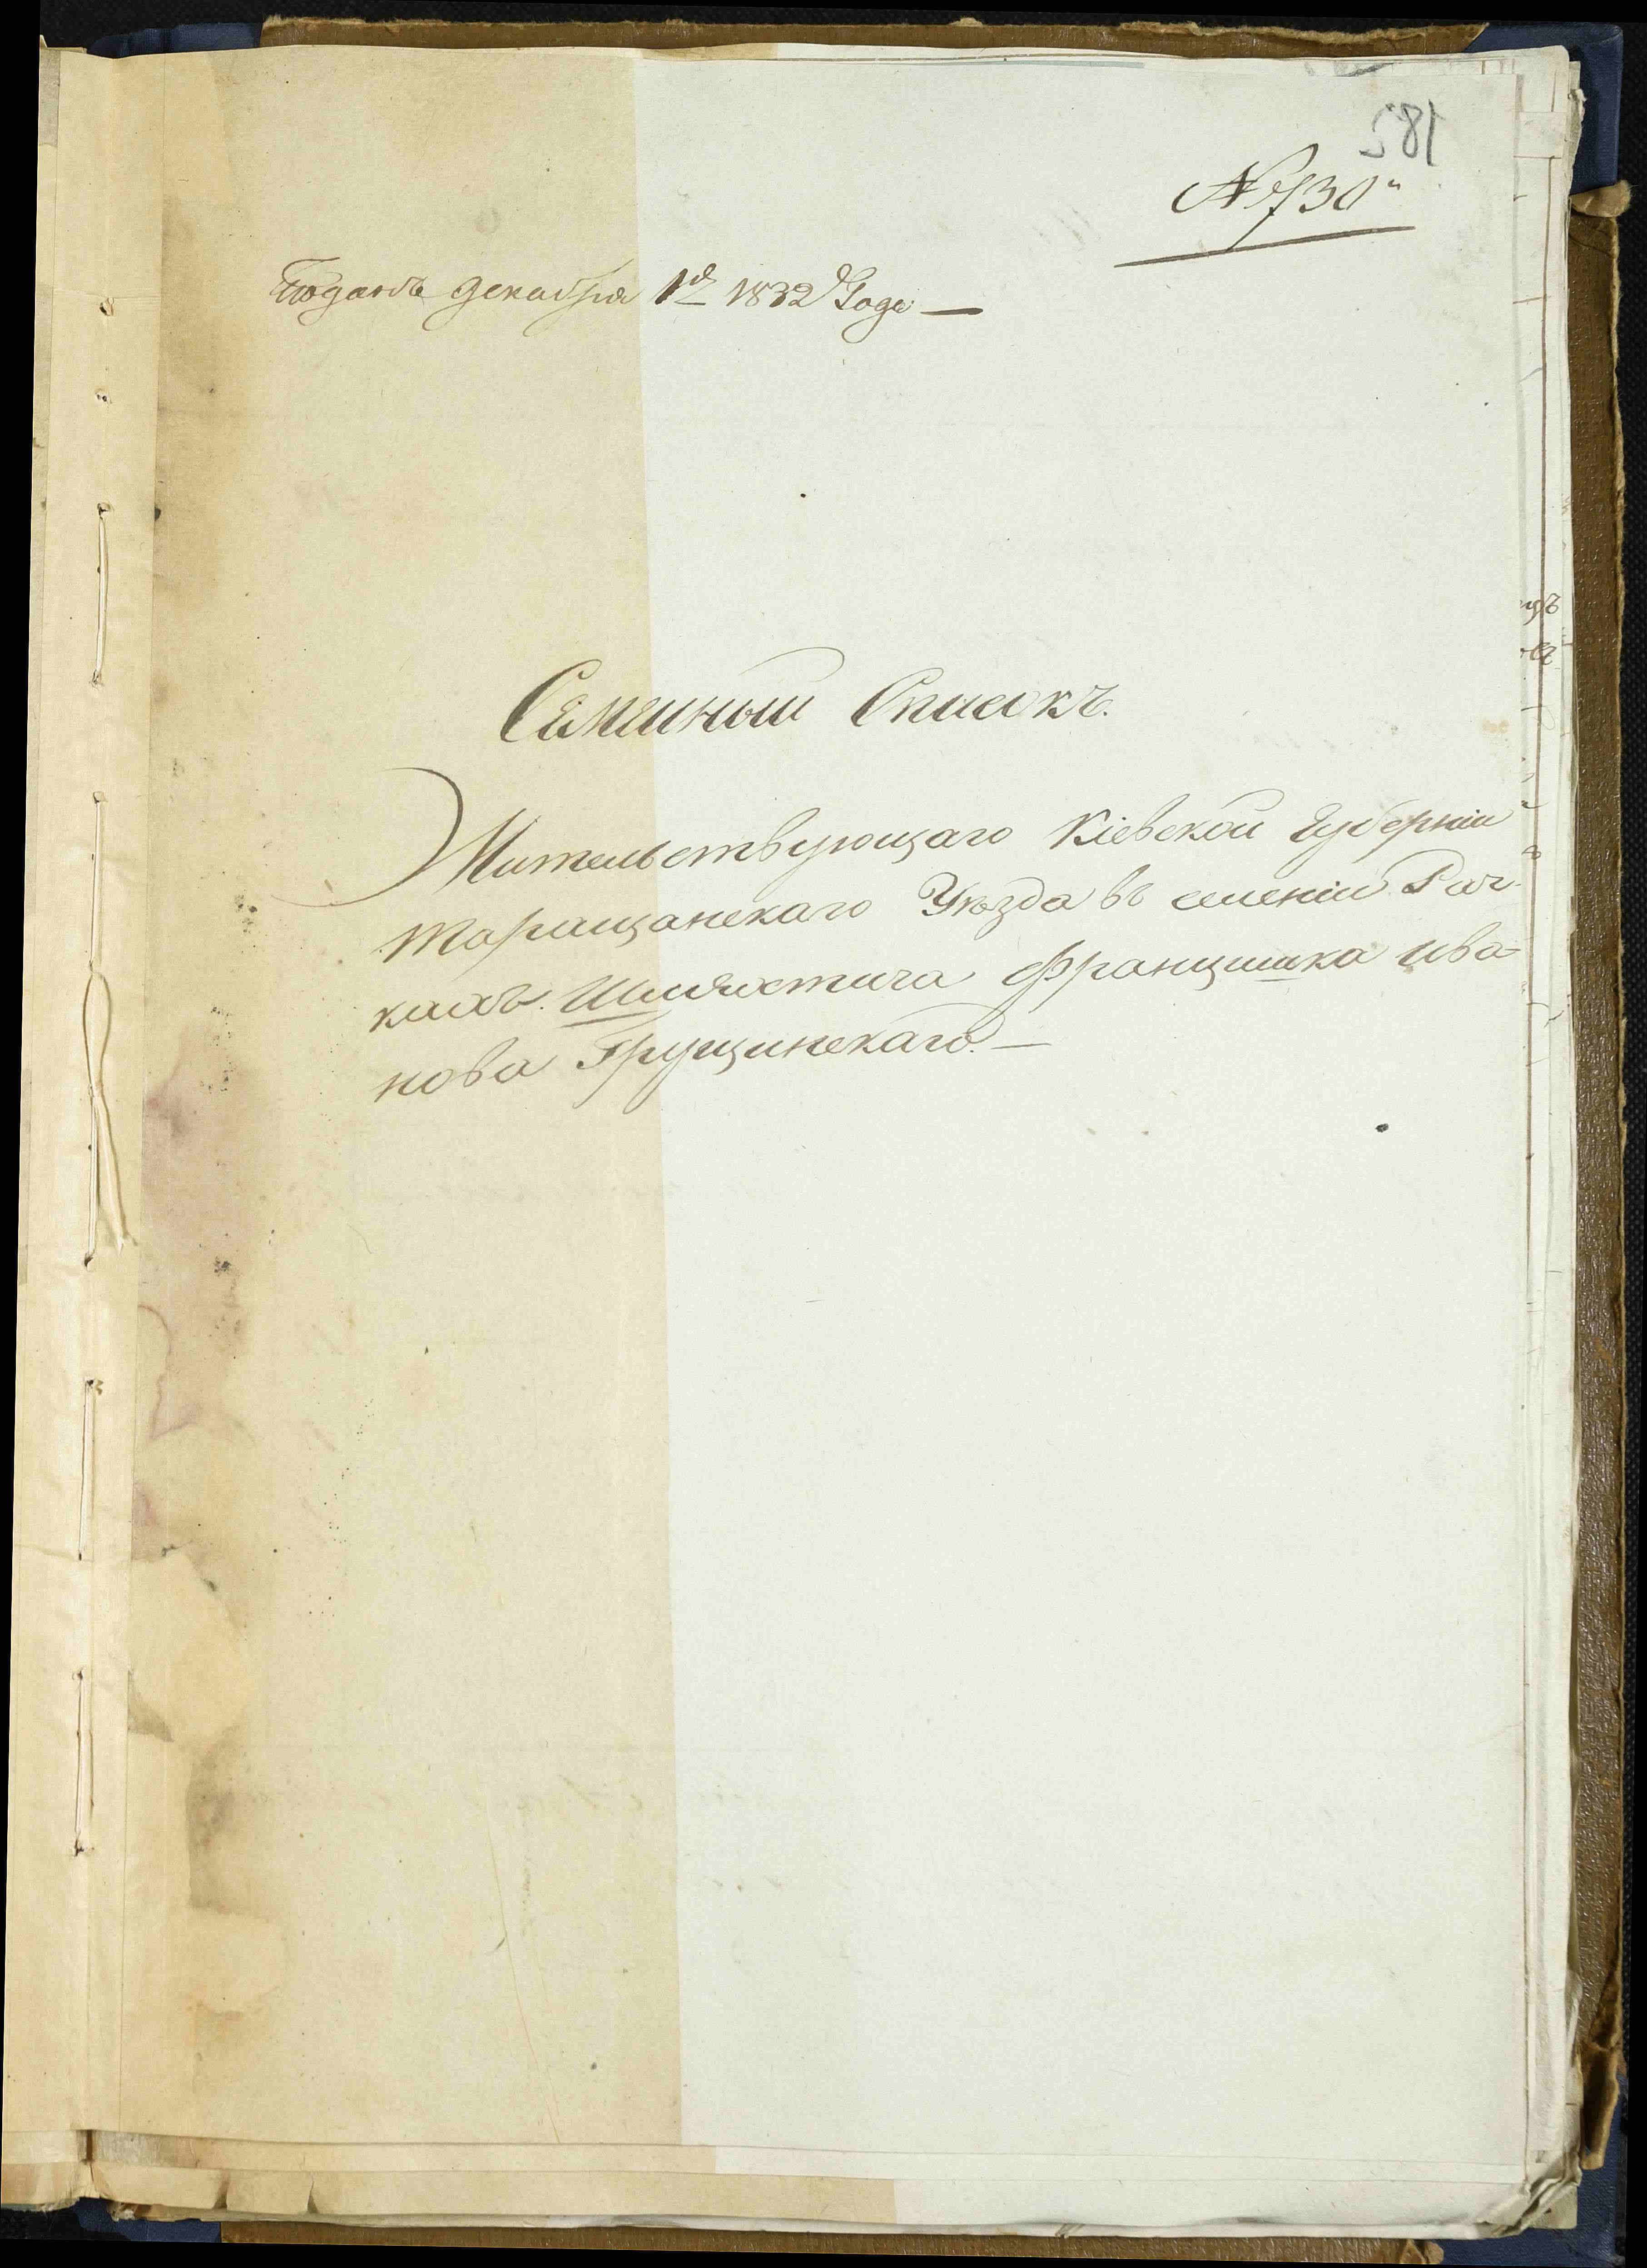 581
№ 730"
Поданъ декабря 1д 1832 Года —
Семейный Списокъ.
Жительствующаго Кіевской Губерніи
Таращанскаго Уѣзда въ селеніи Рач-
кахъ Шляхтича Францишка Ива-
нова Грущинскаго. —